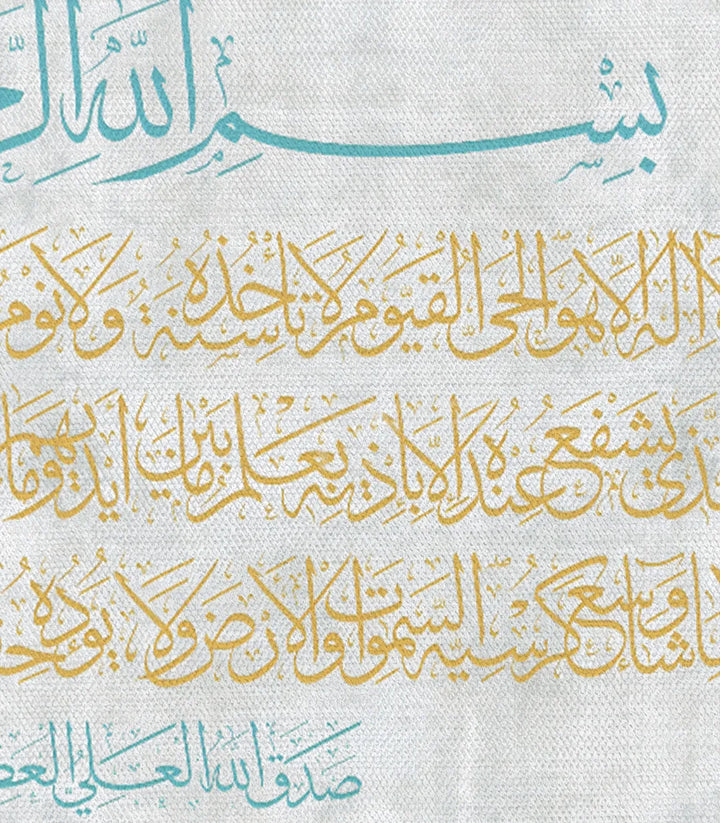 بِسْمِ اللّٰهِ
اِلٰهَ اِلَّا هُوَ الْحَىُّ الْقَيُّومُ لَا تَأْخُذُهُ سِنَةٌ وَلَا نَوْمٌ
يَشْفَعُ عِنْدَهُ اِلَّا بِاِذْنِهِ يَعْلَمُ مَا بَيْنَ اَيْدِيهِمْ وَمَا
شَاءَ وَسِعَ كُرْسِيُّهُ السَّمٰوَاتِ وَالْاَرْضَ وَلَا يَؤُدُهُ
صَدَقَ اللّٰهُ الْعَلِيُّ